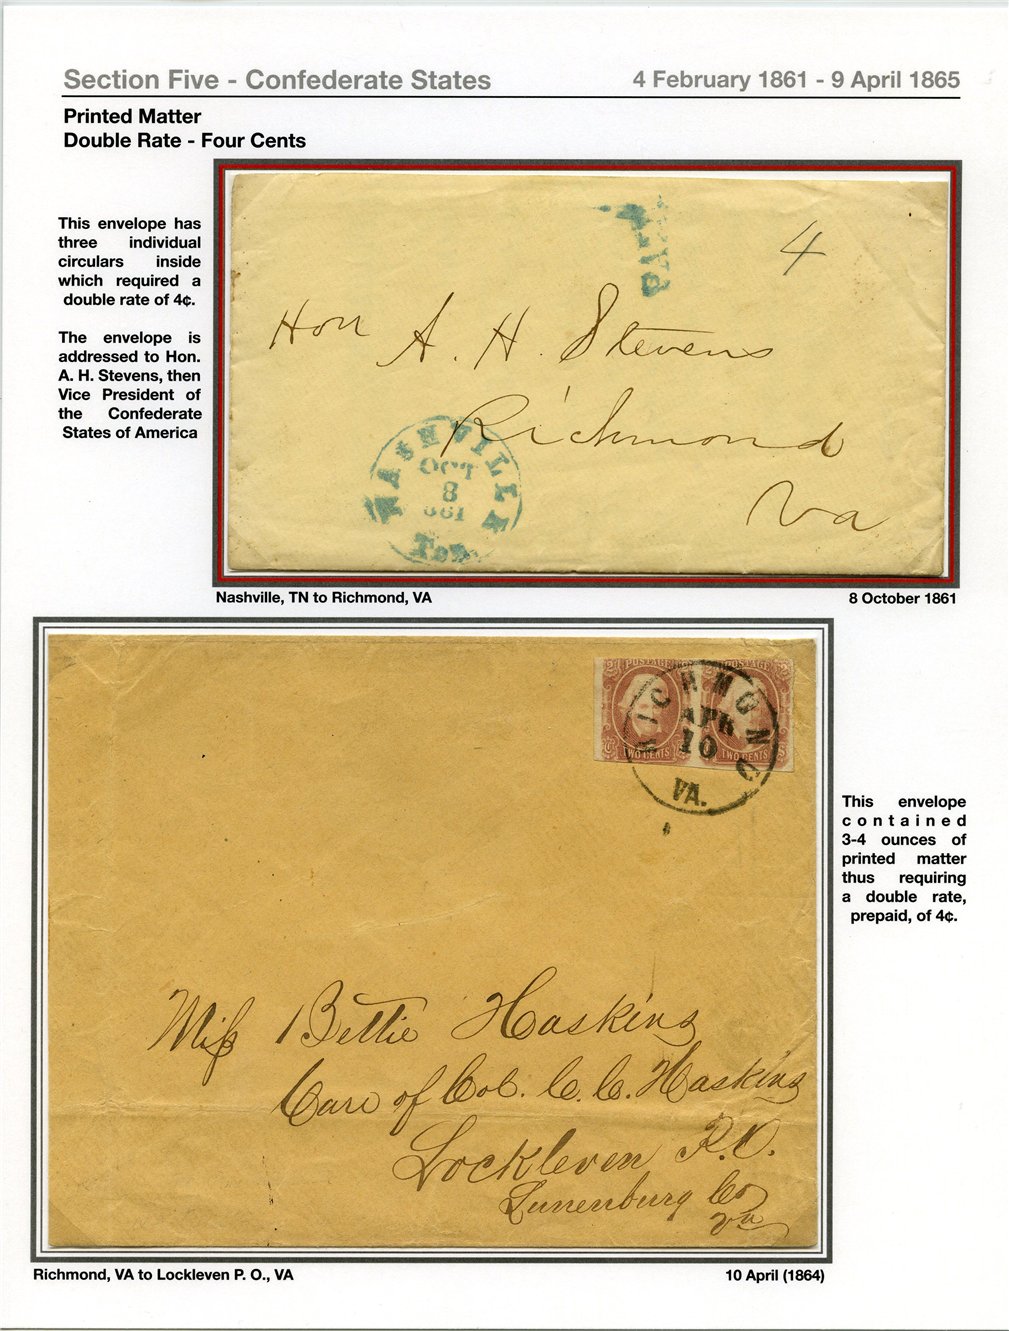 Section Five - Confederate States
4 February 1861 - 9 April 1865
Printed Matter
Double Rate - Four Cents
This envelope has
three individual
circulars inside
which required a
double rate of 4¢.
The envelope is
addressed to Hon.
A. H. Stevens, then
Vice President of
the Confederate
States of America
PAID
4
Hon A. H. Stevens
Richmond
Va
NASHVILLE
OCT
8
1861
Ten.
Nashville, TN to Richmond, VA
8 October 1861
POSTAGE
POSTAGE
TWO CENTS
TWO CENTS
RICHMOND
APR
10
VA.
This envelope
contained
3-4 ounces of
printed matter
thus requiring
a double rate,
prepaid, of 4¢.
Miſs Bettie Haskins
Care of Col. C. C. Haskins
Lockleven P.O.
Lunenburg Co
Va
Richmond, VA to Lockleven P. O., VA
10 April (1864)